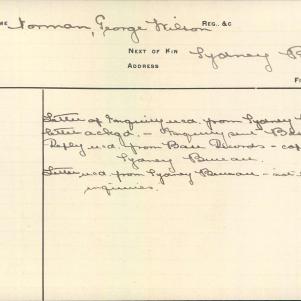 ME Norman, George Wilson REG., &C
NEXT OF KIN Sydney
ADDRESS
Letter of Enquiry recd. from Sydney
letter ackgd. - Enquiry sent
Reply recd. from Base Records - cop
Sydney Bureau.
Letter recd. from Sydney Bureau -
inquiries.